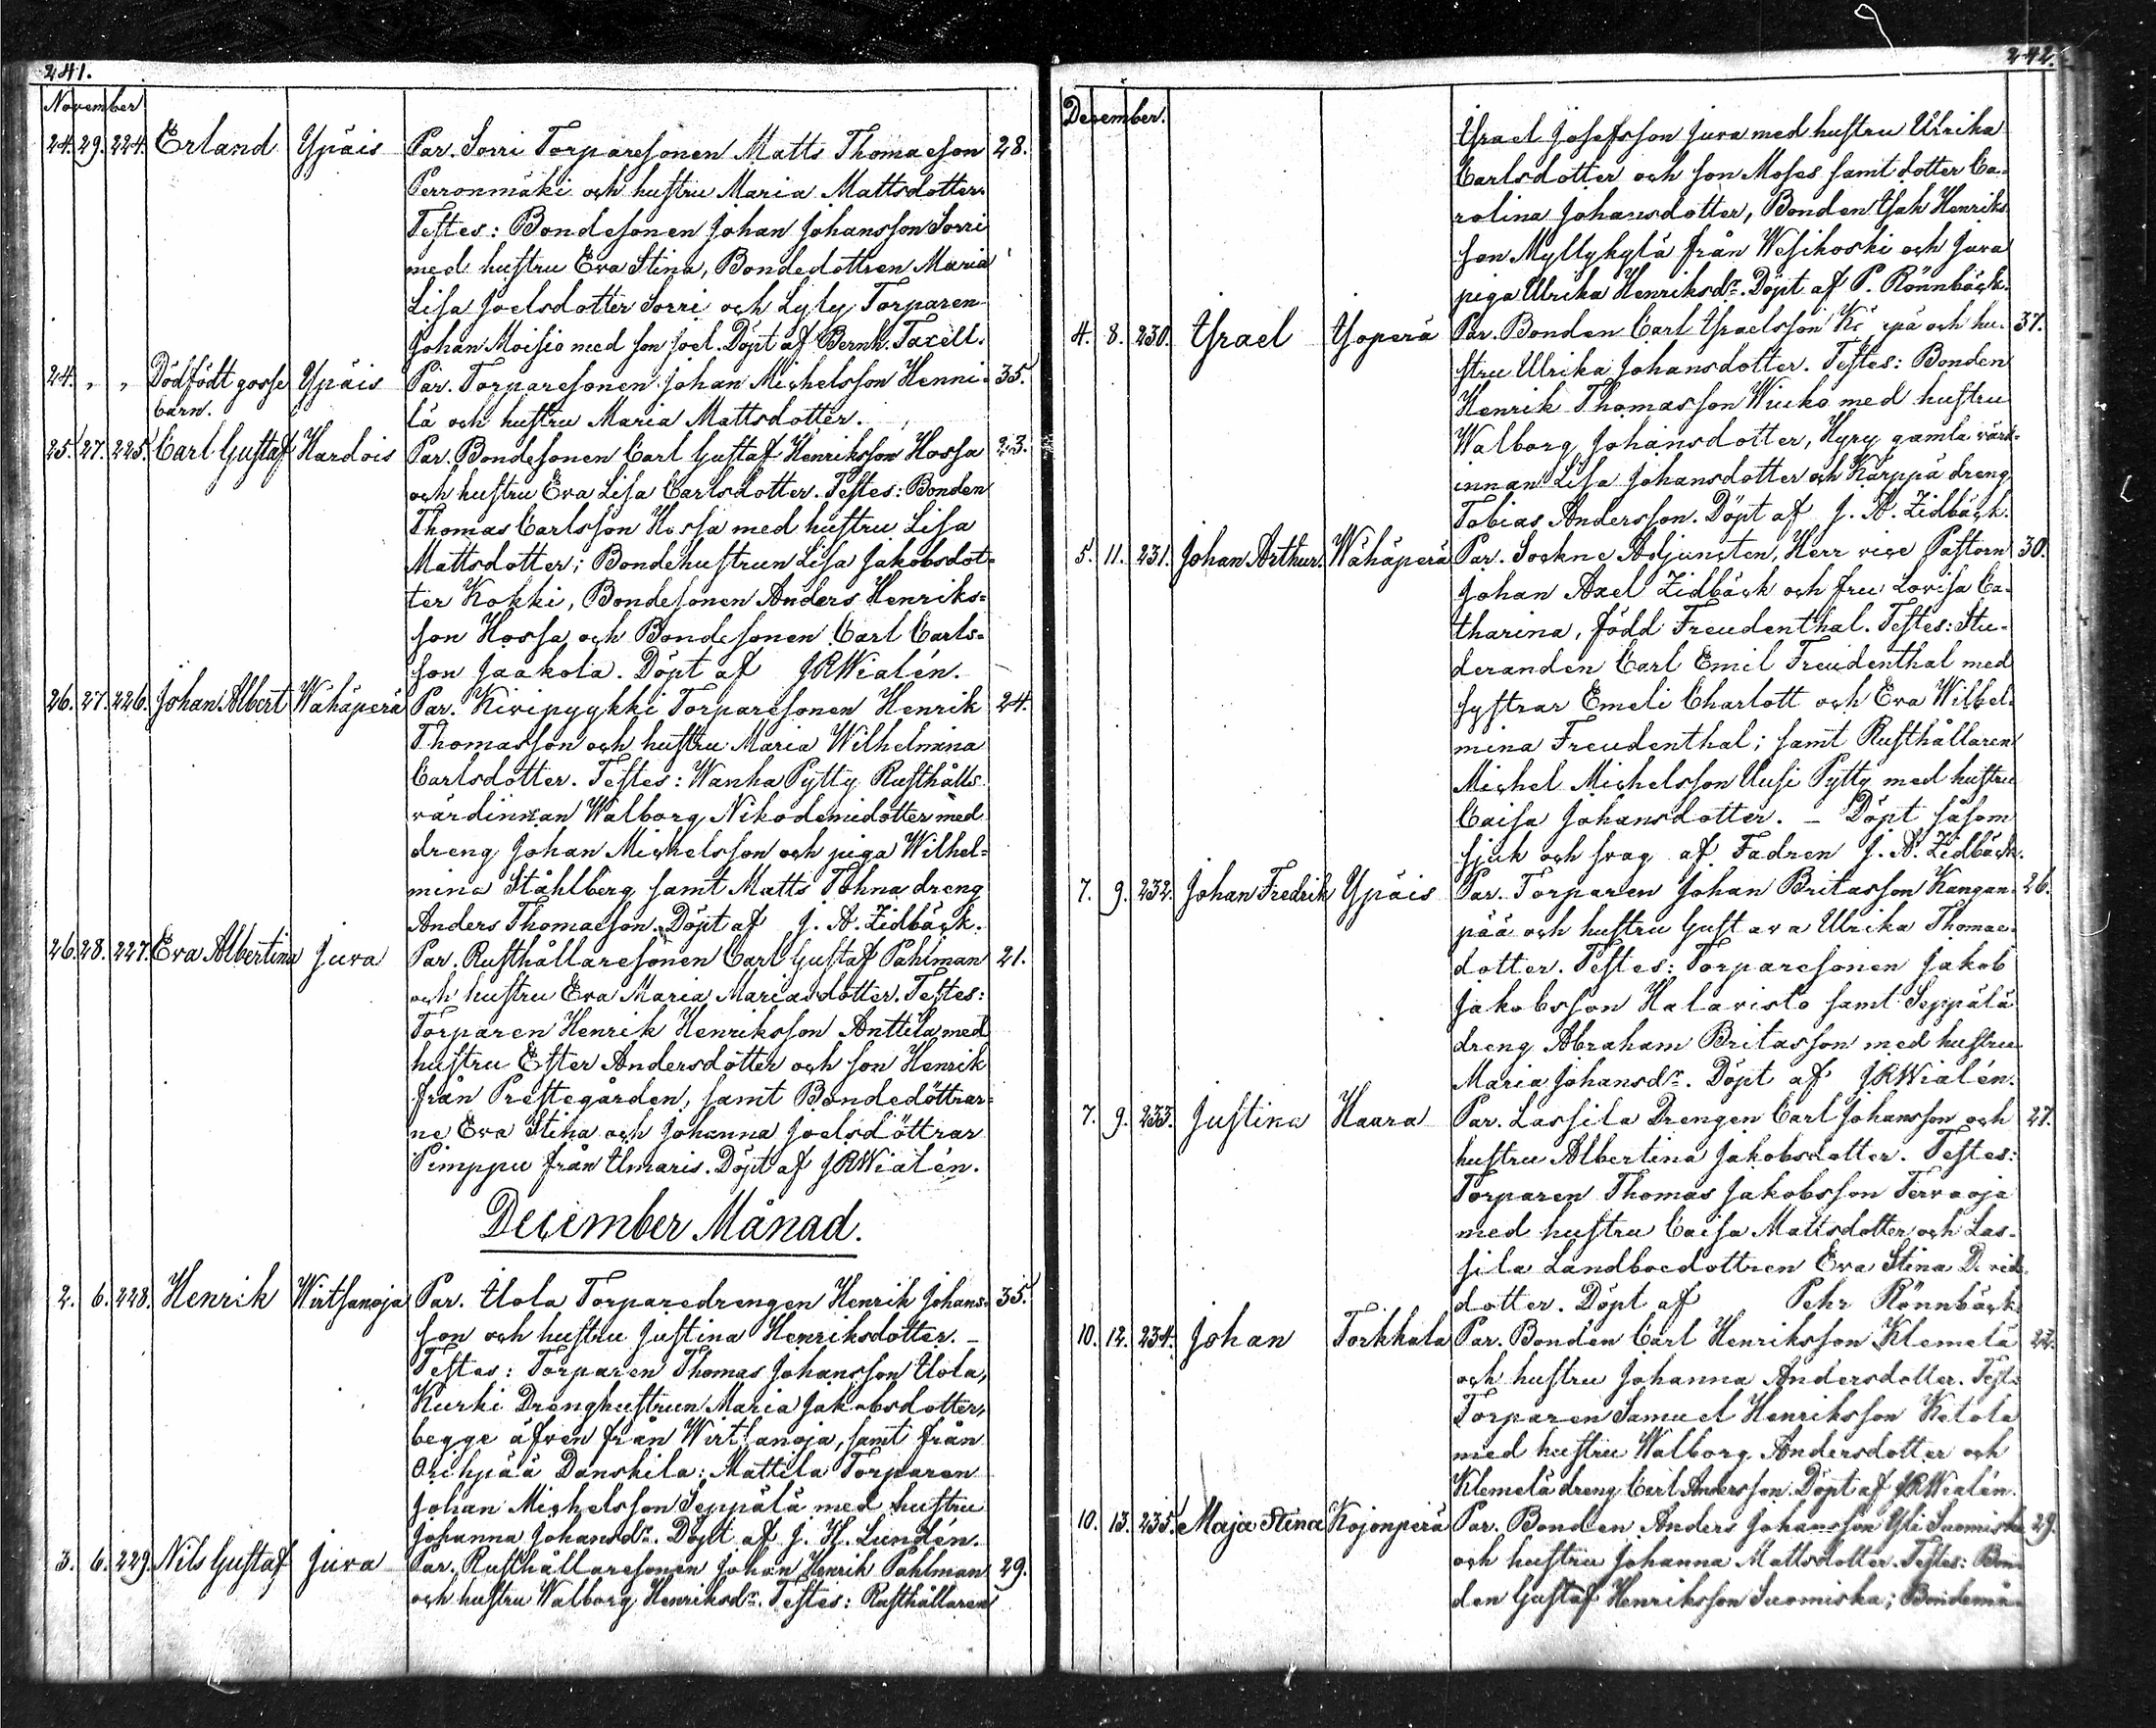 241.
November
24. 29. 224. Erland Ypäis Par. Sorri Torparesonen Matts Thomasson 28.
Perronmäki och hustru Maria Mattsdotter.
Testes: Bondesonen Johan Johansson Sorri
med hustru Eva Stina, Bondedottren Maria
Lisa Joelsdotter Sorri och Lyly Torparen
Johan Moisio med son Joel. Döpt af Bernh. Taxell.
24. " " Dödfödt gosse Ypäis Par. Torparesonen Johan Michelsson Henni- 35.
barn. lä och hustru Maria Mattsdotter.
25. 27. 225. Carl Gustaf Hardois Par. Bondesonen Carl Gustaf Henriksson Hossa 23.
och hustru Eva Lisa Carlsdotter. Testes: Bonden
Thomas Carlsson Hossa med hustru Lisa
Mattsdotter; Bondehustrun Lisa Jakobsdot=
ter Kokki, Bondesonen Anders Henriks=
son Hossa och Bondesonen Carl Carls=
son Jaakola. Döpt af JRWialén.
26. 27. 226. Johan Albert Wähäperä Par. Kiripyykki Torparesonen Henrik 24.
Thomasson och hustru Maria Wilhelmina
Carlsdotter. Testes: Wanha Pytty Rusthålls
värdinnan Walborg Nikodemidotter med
dreng Johan Michelsson och piga Wilhel=
mina Ståhlberg samt Matts Tohna dreng
Anders Thomasson. Döpt af J. A. Zidbäck.
26. 28. 227. Eva Albertina Juva Par. Rusthållaresonen Carl Gustaf Pahlman 21.
och hustru Eva Maria Mariasdotter. Testes:
Torparen Henrik Henriksson Anttila med
hustru Ester Andersdotter och son Henrik
från Prestegården, samt Bondedöttrar=
ne Eva Stina och Johanna Joelsdöttrar
Pimppu från Umaris. Döpt af JRWialén.
December Månad.
2. 6. 228. Henrik Wirtsanoja Par. Uola Torparedrengen Henrik Johans- 35.
son och hustru Justina Henriksdotter. –
Testes: Torparen Thomas Johansson Uola,
Kurki Drenghustrun Maria Jakobsdotter,
begge äfven från Wirtsanoja, samt från
Orihpää Danskila: Mattila Torparen
Johan Michelsson Seppälä med hustru
Johanna Johansdr. Döpt af J. H. Lundén.
3. 6. 229. Nils Gustaf Juva Par. Rusthållaresonen Johan Henrik Pahlman 29.
och hustru Walborg Henriksdr. Testes: Rusthållaren
242.
December.
Israel Josefsson Juva med hustru Ulrika
Carlsdotter och son Moses samt dotter Ca-
rolina Johansdotter, Bonden Isak Henriks
son Myllykylä från Wesikoski och Juva
piga Ulrika Henriksdr. Döpt af P. Rönnbäck.
4. 8. 230. Israel Yöperä Par. Bonden Carl Israelsson och hu- 37.
stru Ulrika Johansdotter. Testes: Bonden
Henrik Thomasson Wiuko med hustru
Walborg Johansdotter, Hyry gamla värd-
innan Lisa Johansdotter och Kärppä dreng
Tobias Andersson. Döpt af J. A. Zidbäck.
5. 11. 231. Johan Arthur. Wähäperä Par. Sockne Adjuncten, Herr vice Pastorn 30.
Johan Axel Zidbäck och fru Lovisa Ca-
tharina, född Freudenthal. Testes: Stu-
deranden Carl Emil Freudenthal med
systrar Emeli Charlott och Eva Wilhel-
mina Freudenthal; samt Rusthållaren
Michel Michelsson Uusi Pytty med hustru
Caisa Johansdotter. – Döpt såsom
sjuk och svag af Fadren J. A. Zidbäck.
7. 9. 232. Johan Fredrik Ypäis Par. Torparen Johan Britasson Kangan- 26.
pää och hustru Gustava Ulrika Thomas-
dotter. Testes: Torparesonen Jakob
Jakobsson Halavisto samt Seppälä
dreng Abraham Britasson med hustru
Maria Johansdr. Döpt af JRWialén.
7. 9. 233. Justina Haara Par. Lassila Drengen Carl Johansson och 27.
hustru Albertina Jakobsdotter. Testes:
Torparen Thomas Jakobsson Tervaoja
med hustru Caisa Mattsdotter och Las-
sila Landboedottren Eva Stina D vids
dotter. Döpt af Pehr Rönnbäck.
10. 12. 234. Johan Torkkala Par. Bonden Carl Henriksson Klemelä 22.
och hustru Johanna Andersdotter. Test:
Torparen Samuel Henriksson Ketola
med hustru Walborg Andersdotter och
Klemelä dreng Carl Andersson. Döpt af JRWialén.
10. 13. 235. Maja Stina Kojonperä Par. Bonden Anders Johansson Yli Suomiska 29.
och hustru Johanna Mattsdotter. Testes: Bon-
den Gustaf Henriksson Suomiska; Bondemå-